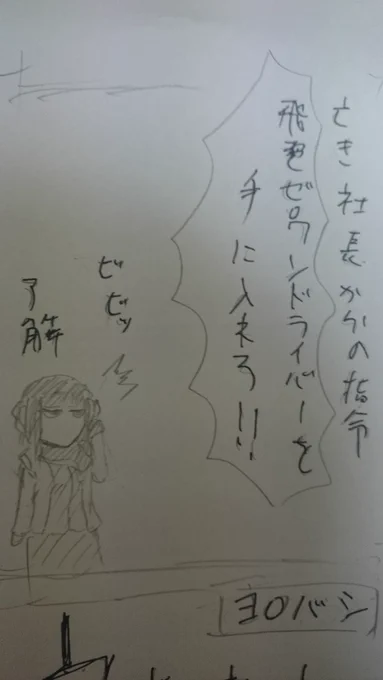 亡き社長からの指令
飛電ゼロワンドライバーを
手に入れろ!!
ビビッ
了解
ヨ○バシ